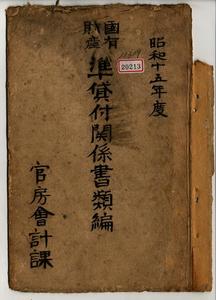 昭和十五年度
國有
財産
準貸付関係書類編
官房會計課
20213